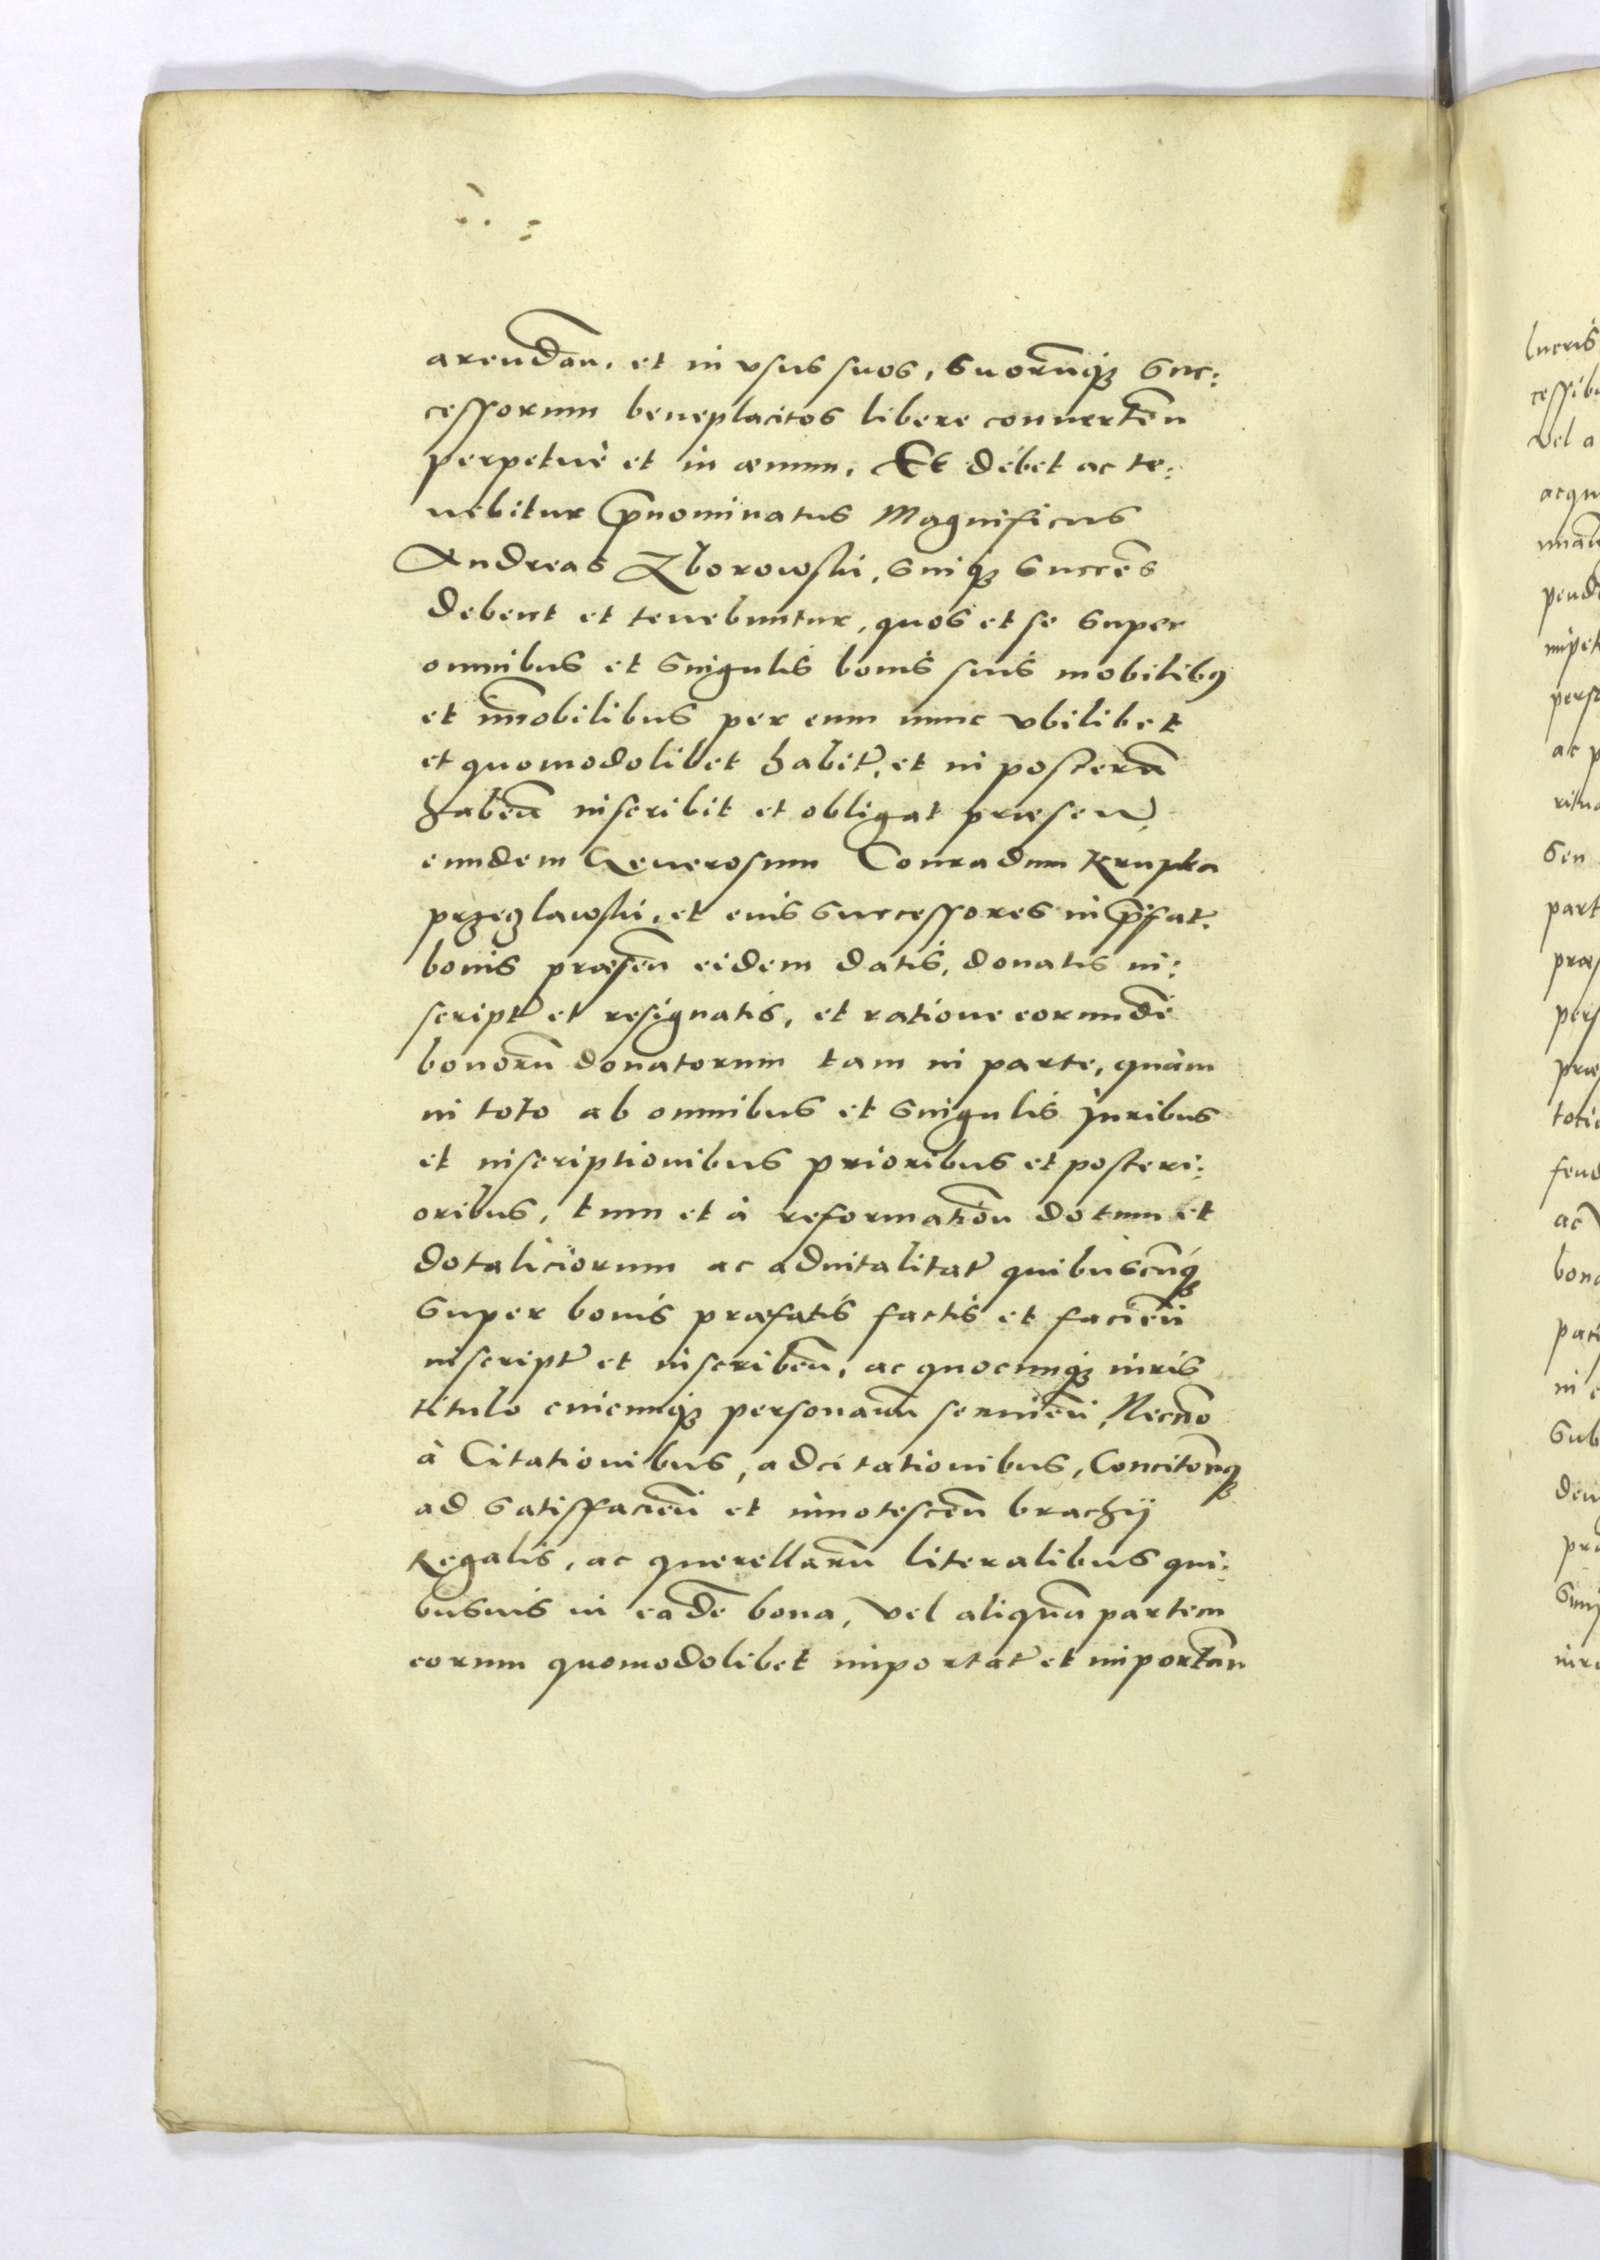 arendan. et in vsus suos, suorumq; suc:
cessorum beneplacitos libere conuerten
perpetuè et in æuum. Et debet ac te:
nebitur prænominatus Magnificus
Andreas Zborowski, suiq; Succes
debent et tenebuntur, quos et se super
omnibus et singulis bonis suis mobilibus
et immobilibus per eum nunc vbilibet
et quomodolibet habit, et in posterum
haben inscribit et obligat præsen,
eundem Generosum Conradum Krupka
przeczlawski, et eius successores in præfat.
bonis præsen eidem datis, donatis in:
script et resignatis, et ratione eorundem
bonorum donatorum tam in parte, quàm
in toto ab omnibus et singulis Juribus
et inscriptionibus prioribus et posteri:
oribus, tum et à reformation dotum et
dotaliciorum ac aduitalitat quibuscunq;
super bonis præfatis factis et facien
inscript et inscriben, ac quocunq; iuris
titulo cuicunq; personarum seruien, Necno
à Citationibus, adcitationibus, Concitonq;
ad satisfacien et innotescen brachij
Regalis, ac querellarum literalibus qui:
busuis in eadem bona, vel aliquam partem
eorum quomodolibet importat et importan
lucris
cessibu
vel a
acqu
pend
impet
perso
ac p
ritua
seu
part
præs
pers
præs
toti
feud
ac
bona
paci
in e
sub
den